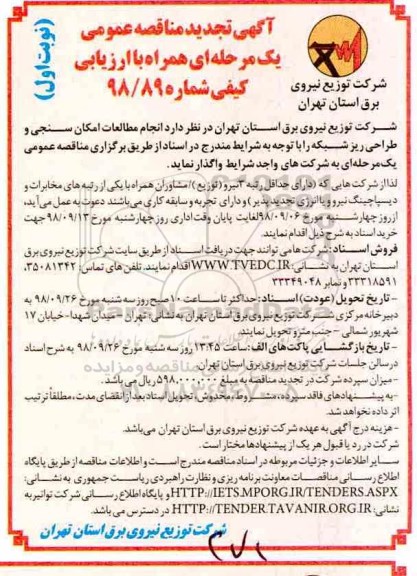 آگهی تجدید مناقصه عمومی
یک مرحله‌ای همراه با ارزیابی
کیفی شماره ۹۸/۸۹
(نوبت اول)
شرکت توزیع نیروی
برق استان تهران
شرکت توزیع نیروی برق استان تهران در نظر دارد انجام مطالعات امکان سنجی و
طراحی ریز شبکه را با توجه به شرایط مندرج در اسناد از طریق برگزاری مناقصه عمومی
یک مرحله‌ای به شرکت های واجد شرایط واگذار نماید.
لذا از شرکت‌هایی که (دارای حداقل رتبه ۳ نیرو (توزیع)/مشاوران همراه با یکی از رتبه های مخابرات و
دیسپاچینگ نیرو و یا انرژی تجدید پذیر) و دارای تجربه و سابقه کاری می‌باشند دعوت به عمل می‌آید،
از روز چهارشنبه مورخ ۹۸/۰۹/۰۶ لغایت پایان وقت اداری روز چهارشنبه مورخ ۹۸/۰۹/۱۳ جهت
خرید اسناد به شرح ذیل اقدام نمایند.
فروش اسناد: شرکت‌ها می توانند جهت دریافت اسناد از طریق سایت شرکت توزیع نیروی برق
استان تهران به نشانی: WWW.TVEDC.IR اقدام نمایند. تلفن های تماس: ۳۵۰۸۱۳۴۲،
۳۳۳۱۸۵۹۱ و نمابر ۳۳۳۴۹۰۴۸
- تاریخ تحویل (عودت) اسناد: حداکثر تا ساعت ۱۰ صبح روز سه شنبه مورخ ۹۸/۰۹/۲۶ به
دبیرخانه مرکزی شرکت توزیع نیروی برق استان تهران به نشانی: تهران - میدان شهدا- خیابان ۱۷
شهریور شمالی - جنب مترو تحویل نمایند.
- تاریخ بازگشایی پاکت‌های الف: ساعت ۱۳:۴۵ روز سه شنبه مورخ ۹۸/۰۹/۲۶ به شرح اسناد
در سالن جلسات شرکت توزیع نیروی برق استان تهران.
- میزان سپرده شرکت در تجدید مناقصه به مبلغ ۵۹۸.۰۰۰.۰۰۰ ریال می باشد.
-به پیشنهادهای فاقد سپرده، مشروط، مخدوش، تحویل اسناد بعد از انقضای مدت، مطلقاً ترتیب
اثر داده نخواهد شد.
- هزینه درج آگهی به عهده شرکت توزیع نیروی برق استان تهران می باشد.
شرکت در رد یا قبول هر یک از پیشنهادها مختار است.
سایر اطلاعات و جزئیات مربوطه در اسناد مناقصه مندرج است و اطلاعات مناقصه از طریق پایگاه
اطلاع رسانی مناقصات معاونت برنامه ریزی و نظارت راهبردی ریاست جمهوری به نشانی:
HTTP://IETS.MPORG.IR/TENDERS.ASPX و پایگاه اطلاع رسانی شرکت توانیر به
نشانی: HTTP://TENDER.TAVANIR.ORG.IR در دسترس می باشد.
شرکت توزیع نیروی برق استان تهران